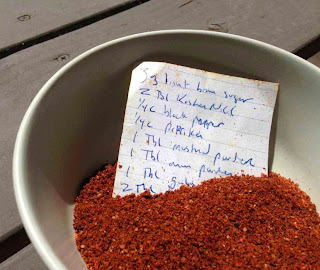 light brown sugar
2 Tbl Kosher
1/4 c black pepper
1/4 c Paprika
1 Tbl mustard powder
1 Tbl onion powder
1 Tbl
2 Tbl